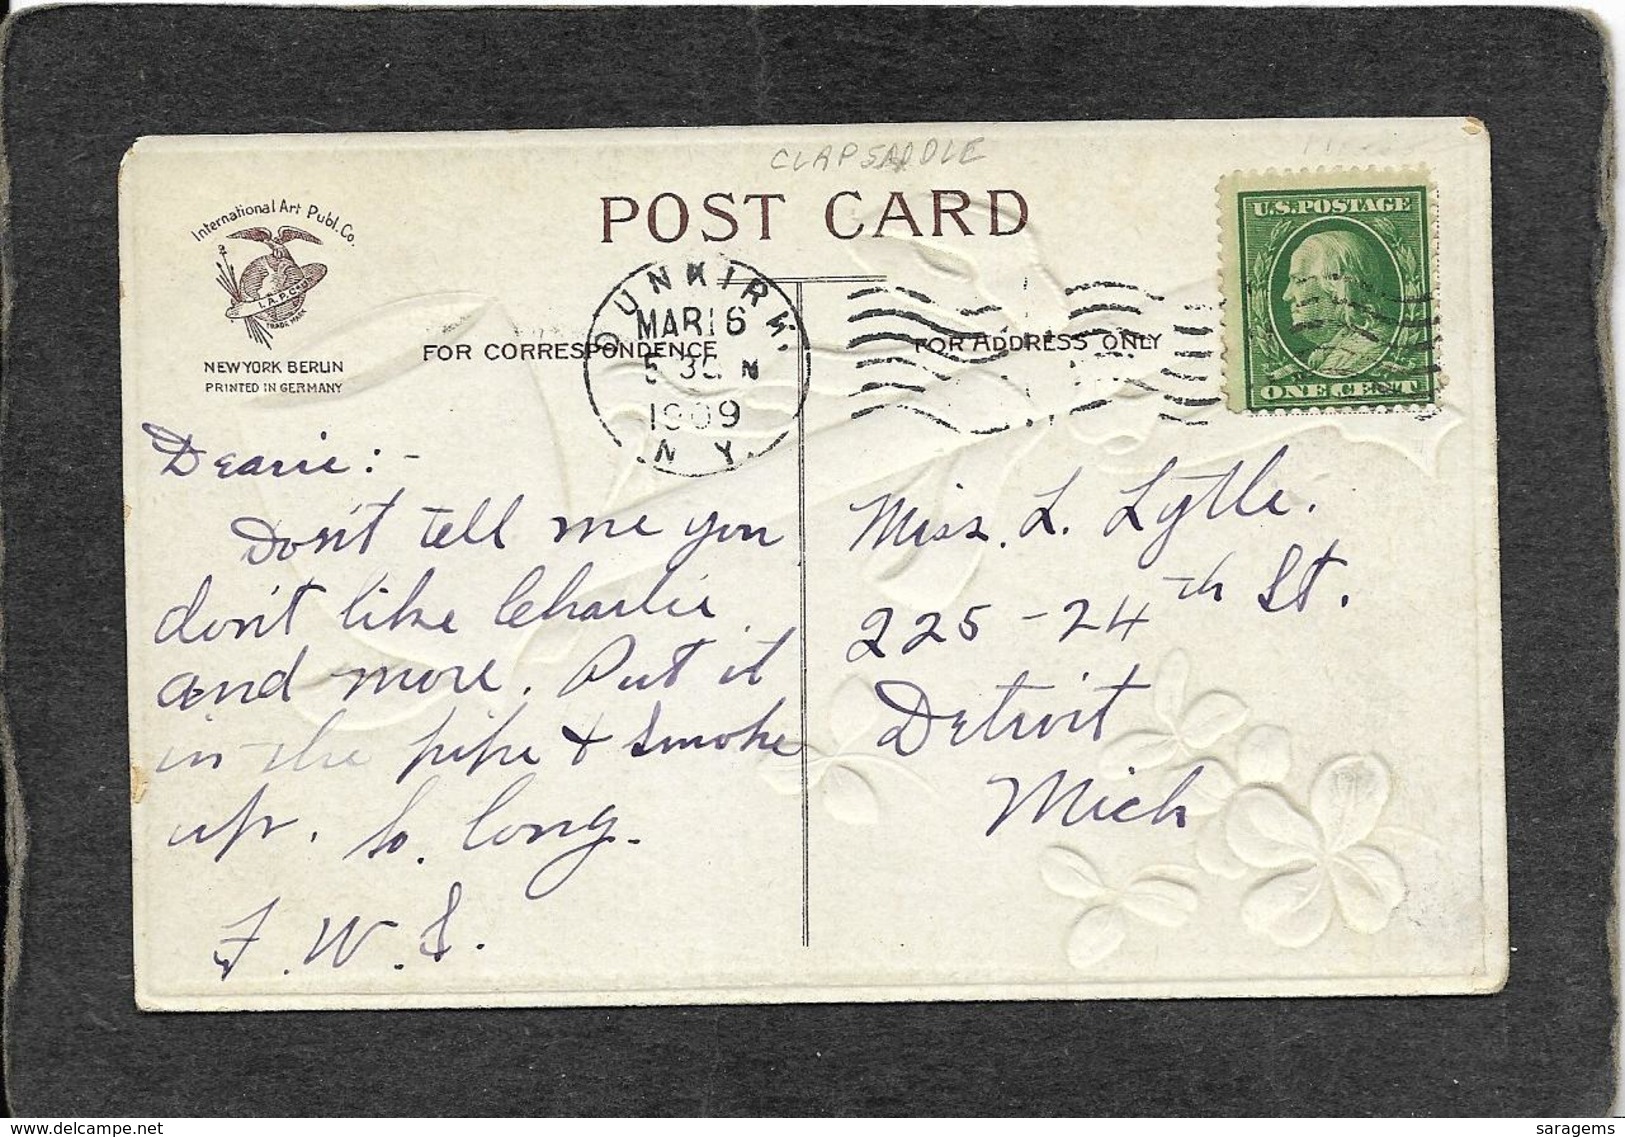 CLAPSADDLE
POST CARD
International Art Publ. Co.
I.A.P.Co.
TRADE MARK
NEW YORK BERLIN
PRINTED IN GERMANY
FOR CORRESPONDENCE
FOR ADDRESS ONLY
DUNKIRK,
MAR 16
1909
N.Y.
U.S. POSTAGE
ONE CENT
Dearie:-
Don't tell me you
don't like Charlie
and more. Put it
in the pipe & smoke
up. So. long.
F.W.S.
Miss. L. Lytle.
225-24th St.
Detroit
Mich
delcampe.net
saragems